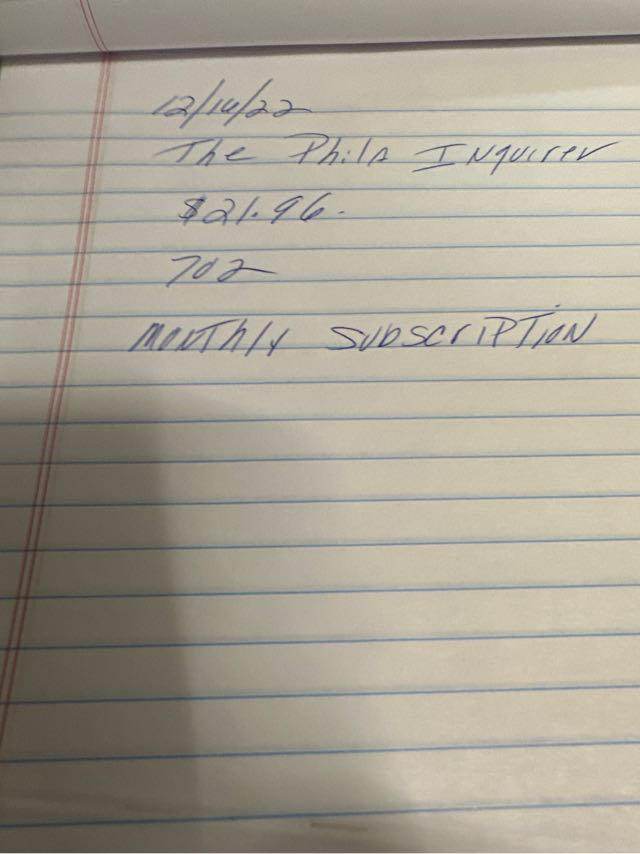 12/14/22
The Phila Inquirer
$21.96.
702
Monthly Subscription